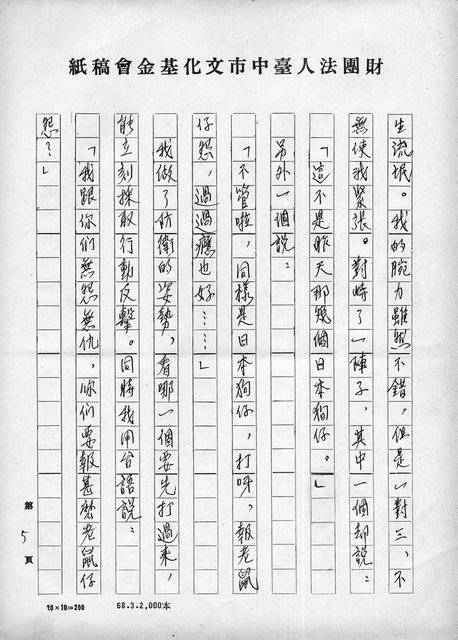 財團法人臺中市文化基金會稿紙
生流氓。我的腕力雖然不錯，但是一對三，不
無使我緊張。對峙了一陣子，其中一個却說：
「這不是昨天那幾個日本狗仔。」
另外一個說：
「不管啦，同樣是日本狗仔，打呀，報老鼠
仔怨，過過癮也好……」
我做了防衛的姿勢，看哪一個要先打過來，
能立刻採取行動反擊。同時我用台語說：
「我跟你們無怨無仇，你們要報甚麽老鼠仔
怨？」
第5頁
20×10=200
68.3.2,000本